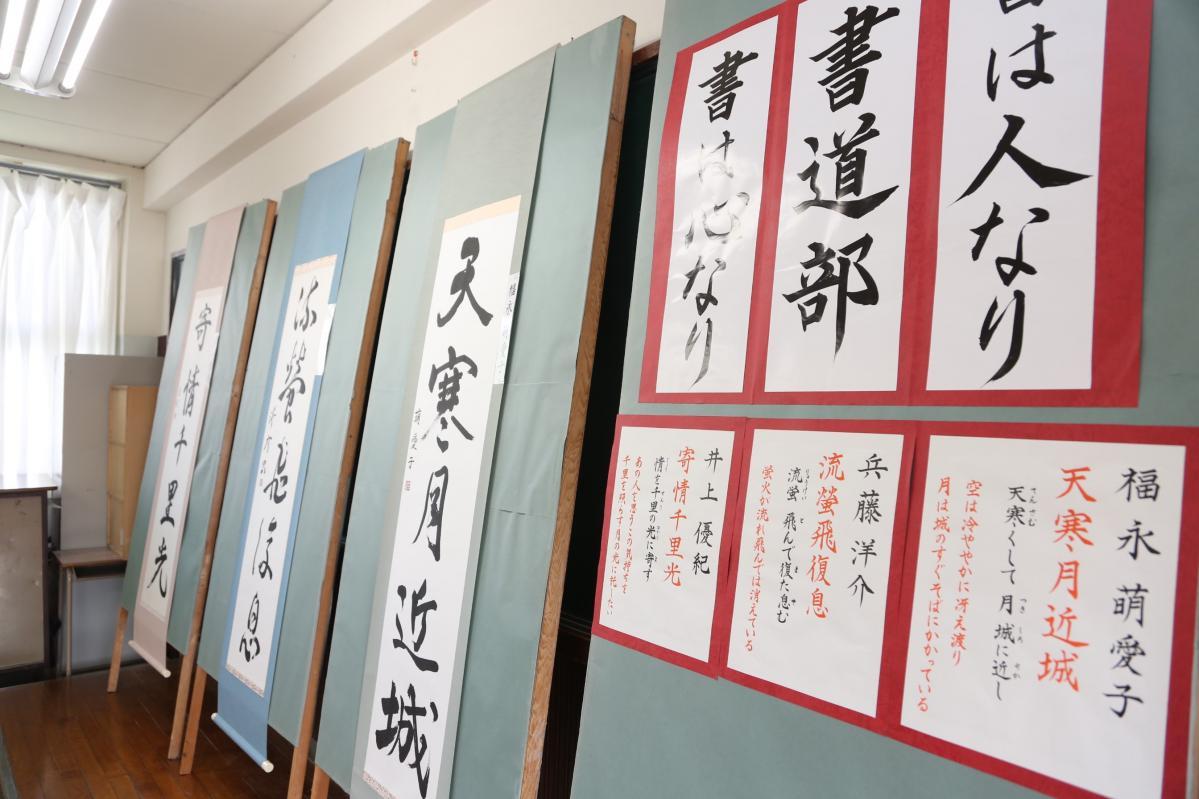 は人なり
書道部
書は心なり
福永 萌愛子
天寒月近城
天寒くして 月 城に近し
空は冷ややかに冴え渡り
月は城のすぐそばにかかっている
兵藤 洋介
流螢飛復息
流螢 飛んで復た息む
螢火が流れ飛んでは消えている
井上 優紀
寄情千里光
情を千里の光に寄す
あの人を思うこの気持ちを
千里を照らす月の光に托したい
福永
天寒月近城
萌愛子
流螢飛復息
寄情千里光